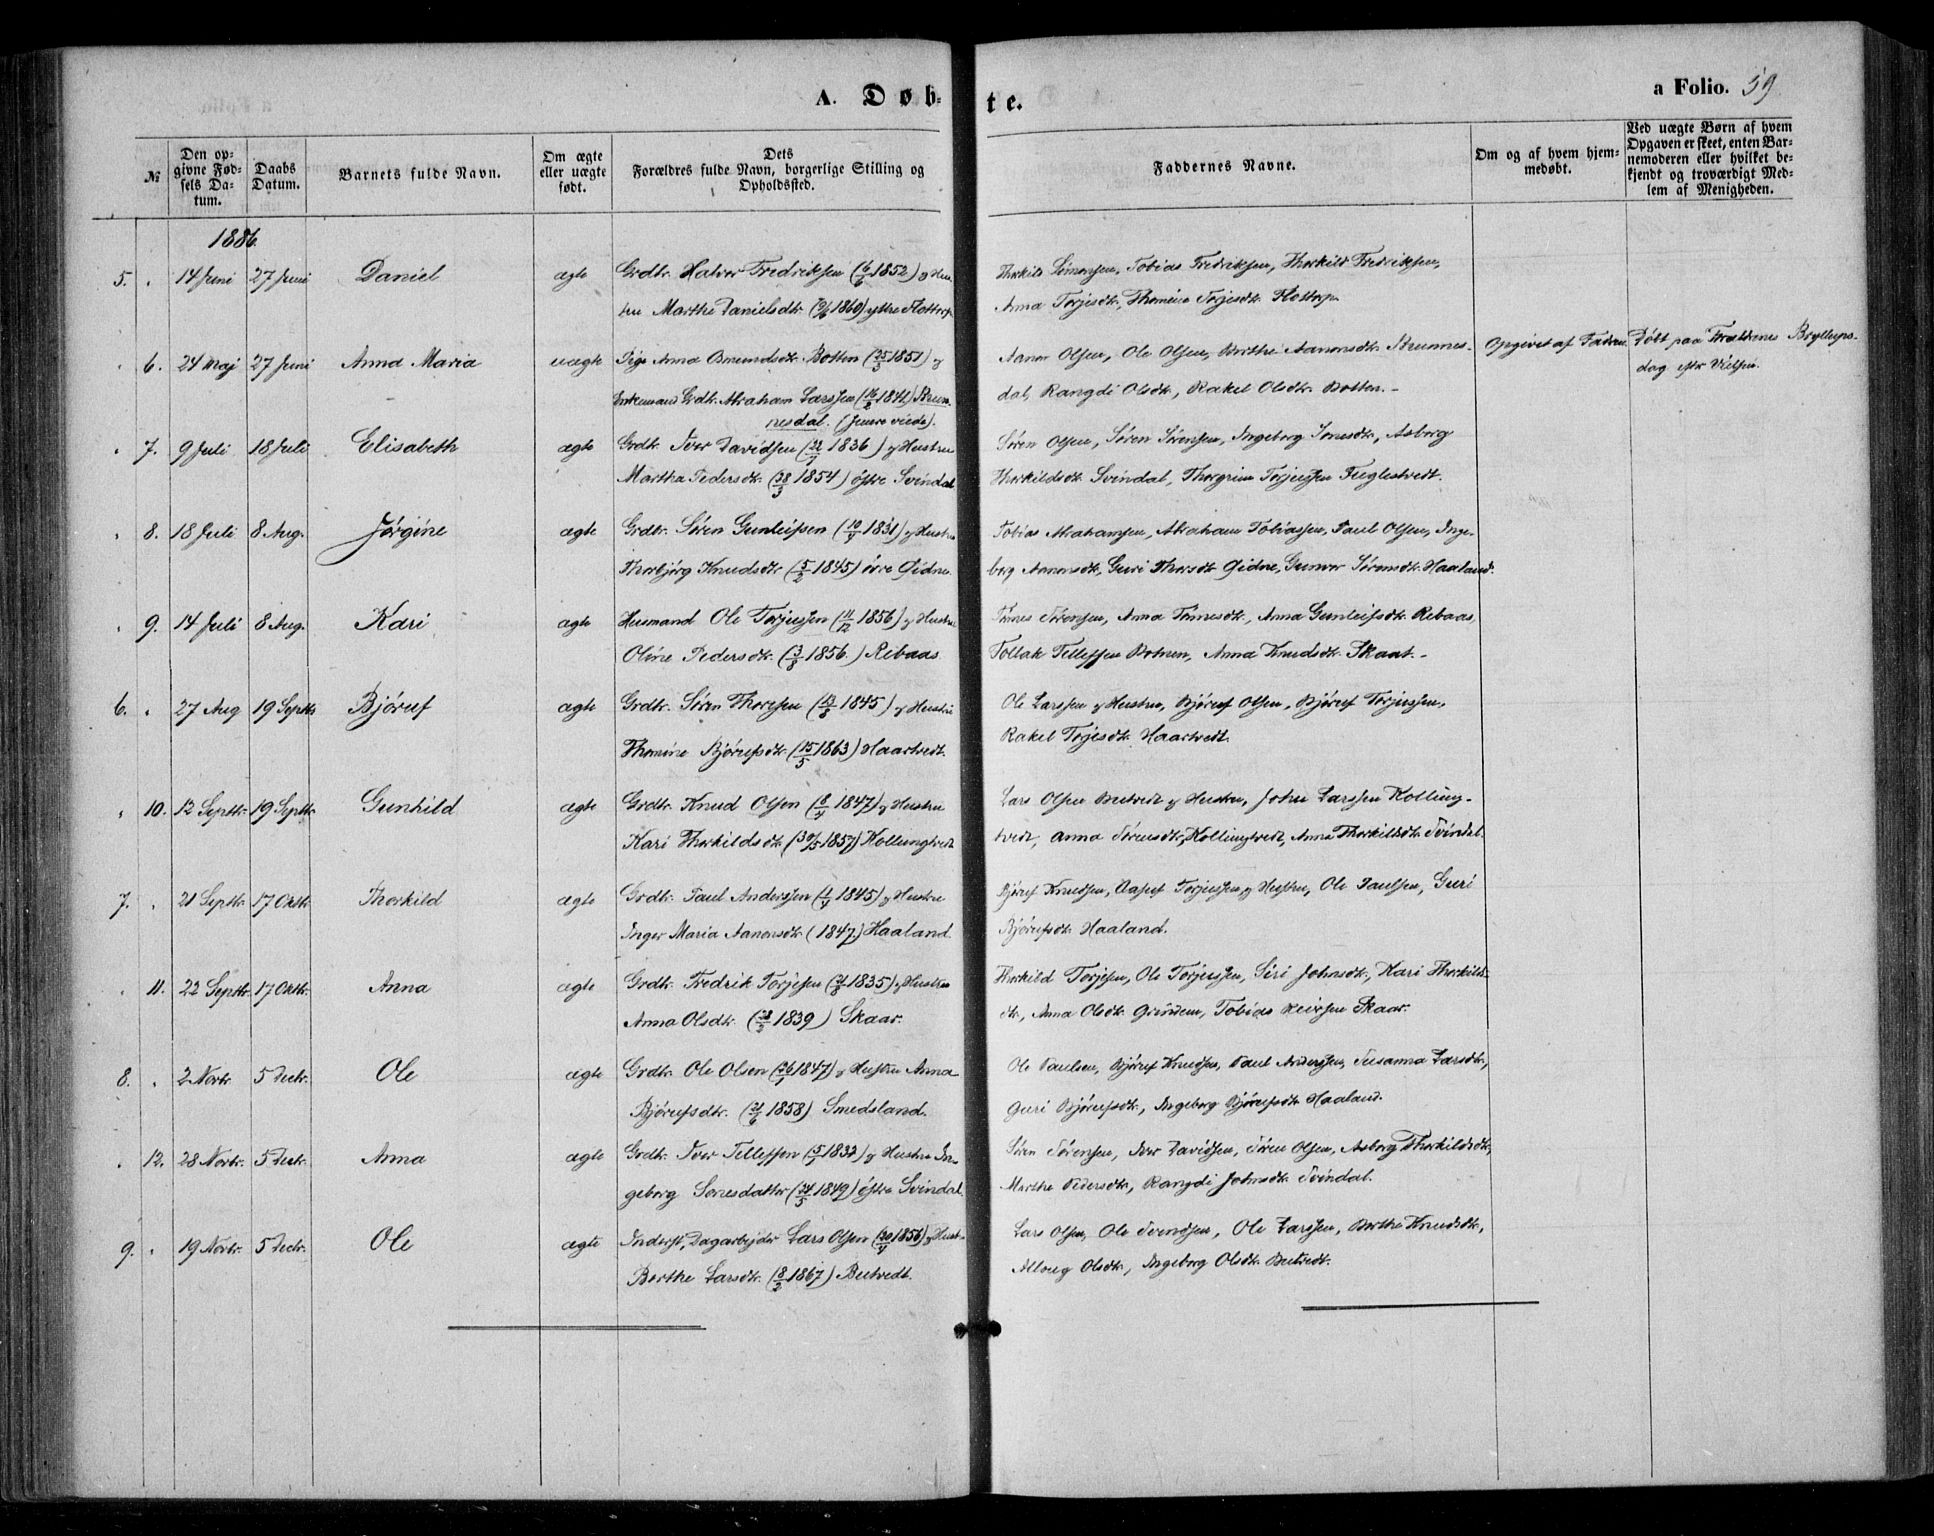 A. Døb-
te.
a Folio. 59
№
Den op-
givne Fød-
sels Da-
tum.
Daabs
Datum.
Barnets fulde Navn.
Om ægte
eller uægte
født.
Dets
Forældres fulde Navn, borgerlige Stilling og
Opholdssted.
Faddernes Navne.
Om og af hvem hjem-
medøbt.
Ved uægte Børn af hvem
Opgaven er skeet, enten Bar-
nemoderen eller hvilket be-
kjendt og troværdigt Med-
lem af Menigheden.
1886.
5. " 14 Juni 27 Juni Daniel ægte Grdbr. Halvor Fredriksen (6/6 1852) og Hus-
tru Marthe Danielsdtr. (1860) ystre Flottorp
Thorkild Simonsen, Tobias Fredriksen, Thorkild Fredriksen,
Anna Torjesdtr., Thomine Torjesdtr. Flottorp
" 6. 24 Maj 27 Juni Anna Maria uægte Pige Anna Osmundsdtr. Botten (25/3 1851) og
Enkemand Grdbr. Abraham Larssen (16/2 1841) Brun-
nesdal. (senere viede).
Aanon Olsen, Ole Olsen, Berthe Aanonsdtr. Brunnes-
dal, Rangdi Olsdtr., Rakel Olsdtr. Botten. -
Opgivet af Faderen
Døbt paa Forældrenes Bryllups-
dag efter Vielsen.
" 7. 9 Juli 18 Juli Elisabeth ægte Grdbr. Iver Davidsen (22/7 1836) og Hustru
Martha Pedersdtr. (28/3 1854) østre Svindal
Søren Olsen, Søren Sørensen, Ingeborg Sønesdtr., Asborg
Thorkildsdtr. Svindal, Thorgrim Torjussen Fuglestvedt.
" 8. 18 Juli 8 Aug. Jørgine ægte Grdbr. Søren Gunleifsen (10/7 1831) og Hustru
Thorbjørg Knudsdtr. (5/2 1845) øvre Eidne
Tobias Abrahamsen, Abraham Tobiassen, Paul Olsen, Inge-
borg Aanonsdtr., Guri Thorsdtr. Eidne, Gunvor Sørensdtr. Haaland.
" 9. 14 Juli 8 Aug. Kari ægte Husmand Ole Torjussen (11/12 1856) og Hustru
Oline Pedersdtr. (3/8 1856.) Ribaas
Tønes Sørensen, Anna Tønnesdtr., Anna Gunleifsdtr. Ribaas,
Tollak Tellefsen Botnen, Anna Knudsdtr. Skaar. -
6. " 27 Aug 19 Septbr Bjøruf ægte Grdbr. Søren Thorsen (1845) og Hustru
Thomine Bjørufsdtr. (15/5 1863) Haartvedt.
Ole Larssen og Hustru, Bjøruf Olsen, Bjøruf Torjussen,
Rakel Torjesdtr. Haartvedt.
" 10. 12 Septbr. 19 Septbr. Gunhild ægte Grdbr. Knud Olsen (8/4 1847) og Hustru
Kari Thorkildsdtr. (30/5 1857) Kollungtvedt
Lars Olsen Butvedt og Hustru, John Larssen Kolling-
tvedt, Anna Sørensdtr., Kollingtvedt, Anna Thorkildsdtr. Svindal.
7. " 21 Septbr. 17 Oktbr. Thorkild ægte Grdbr. Paul Anderssen (1/4 1845) og Hustru
Inger Maria Aanonsdtr. (1847.) Haaland
Bjøruf Knudsen, Aasuf Torjussen og Hustru, Ole Paulsen, Guri
Bjørufsdtr. Haaland.
" 11. 22 Septbr. 17 Oktbr. Anna ægte Grdbr. Fredrik Torjesen (1835) og Hustru
Anna Olsdtr. (28/2 1839) Skaar.
Thorkild Torjesen, Ole Torjussen, Siri Johnsdtr., Kari Thorkilds-
dtr., Anna Olsdtr. Grindem, Tobias Reiersen Skaar.
8. " 2 Novbr. 5 Decbr. Ole ægte Grdbr. Ole Olsen (26/1 1847) og Hustru Anna
Bjørufsdtr. (21/6 1858) Smedsland.
Ole Paulsen, Bjøruf Knudsen, Paul Anderssen, Susanna Larsdtr.,
Guri Bjørufsdtr., Ingeborg Bjørufsdtr. Haaland.
" 12. 28 Novbr. 5 Decbr. Anna ægte Grdbr. Iver Tellefsen (5/1 1832) og Hustru In-
geborg Sønesdatter (24/5 1849) østre Svindal.
Søren Sørensen, Iver Davidsen, Søren Olsen, Asborg Thorkildsdtr.,
Marthe Pedersdtr., Rangdi Johnsdtr. Svindal.
9. " 19 Novbr. 5 Decbr. Ole ægte Inderst, Dagarbejder Lars Olsen (20/4 1856) og Hust-
Berthe Larsdtr. (8/2 1867) Butvedt.
Lars Olsen, Ole Svendsen, Ole Larssen, Berthe Knudsdtr.,
Alloug Olsdtr., Ingeborg Olsdtr. Butvedt.